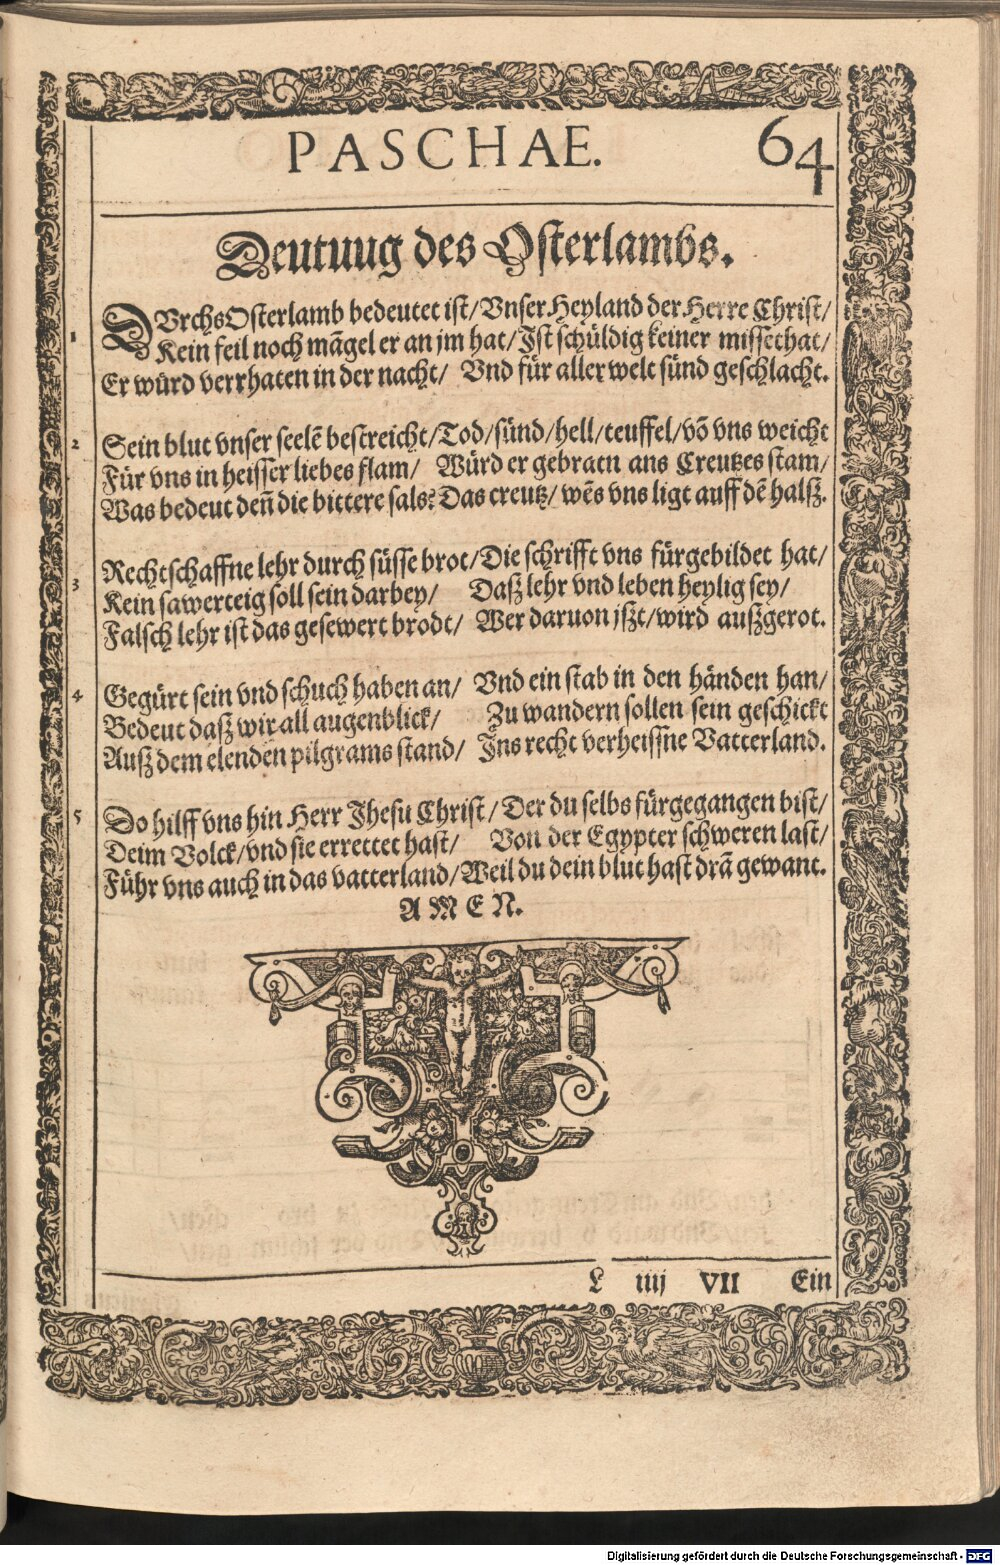 PASCHAE. 64
Deutuug des Osterlambs.
1 DVrchs Osterlamb bedeutet ist/Vnser Heyland der Herre Christ/
Kein feil noch mãgel er an jm hat/Ist schüldig keiner missethat/
Er würd verrhaten in der nacht/ Vnd für aller welt sünd geschlacht.
2 Sein blut vnser seelẽ bestreicht/Tod/sünd/hell/teuffel/võ vns weicht
Für vns in heisser liebes flam/ Würd er gebratn ans Creutzes stam/
Was bedeut deñ die bittere sals? Das creutz/wẽs vns ligt auff dẽ halsz.
3 Rechtschaffne lehr durch süsse brot/Die schrifft vns fürgebildet hat/
Kein sawerteig soll sein darbey/ Dasz lehr vnd leben heylig sey/
Falsch lehr ist das gesewert brodt/ Wer daruon jszt/wird auszgerot.
4 Gegürt sein vnd schuch haben an/ Vnd ein stab in den händen han/
Bedeut dasz wir all augenblick/ Zu wandern sollen sein geschickt
Ausz dem elenden pilgrams stand/ Ins recht verheissne Vatterland.
5 Do hilff vns hin Herr Jhesu Christ/Der du selbs fürgegangen bist/
Deim Volck/vnd sie errettet hast/ Von der Egypter schweren last/
Führ vns auch in das vatterland/Weil du dein blut hast drã gewant.
AMEN.
L iiij VII Ein
Digitalisierung gefördert durch die Deutsche Forschungsgemeinschaft - DFG